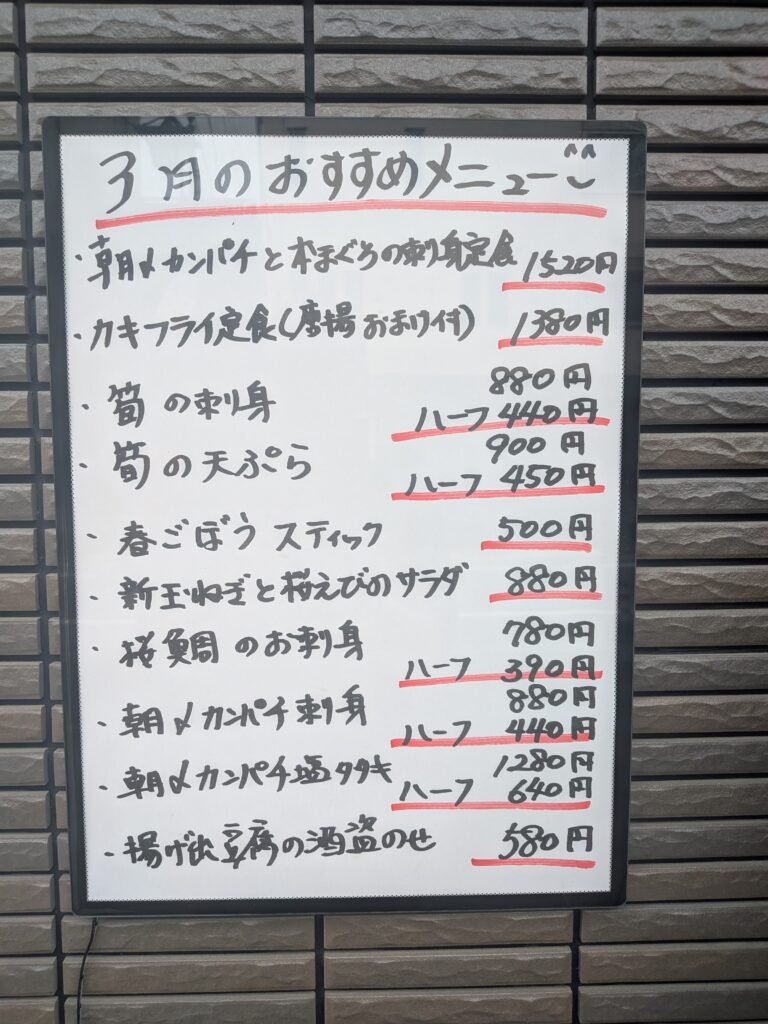 3月のおすすめメニュー^^
・朝〆カンパチと本まぐろの刺身定食 1520円
・カキフライ定食(唐揚おまけ付) 1380円
・筍の刺身 880円
ハーフ 440円
・筍の天ぷら 900円
ハーフ 450円
・春ごぼうスティック 500円
・新玉ねぎと桜えびのサラダ 880円
・桜鯛のお刺身 780円
ハーフ 390円
・朝〆カンパチ刺身 880円
ハーフ 440円
・朝〆カンパチ塩タタキ 1280円
ハーフ 640円
・揚げ出豆腐の酒盗のせ 580円